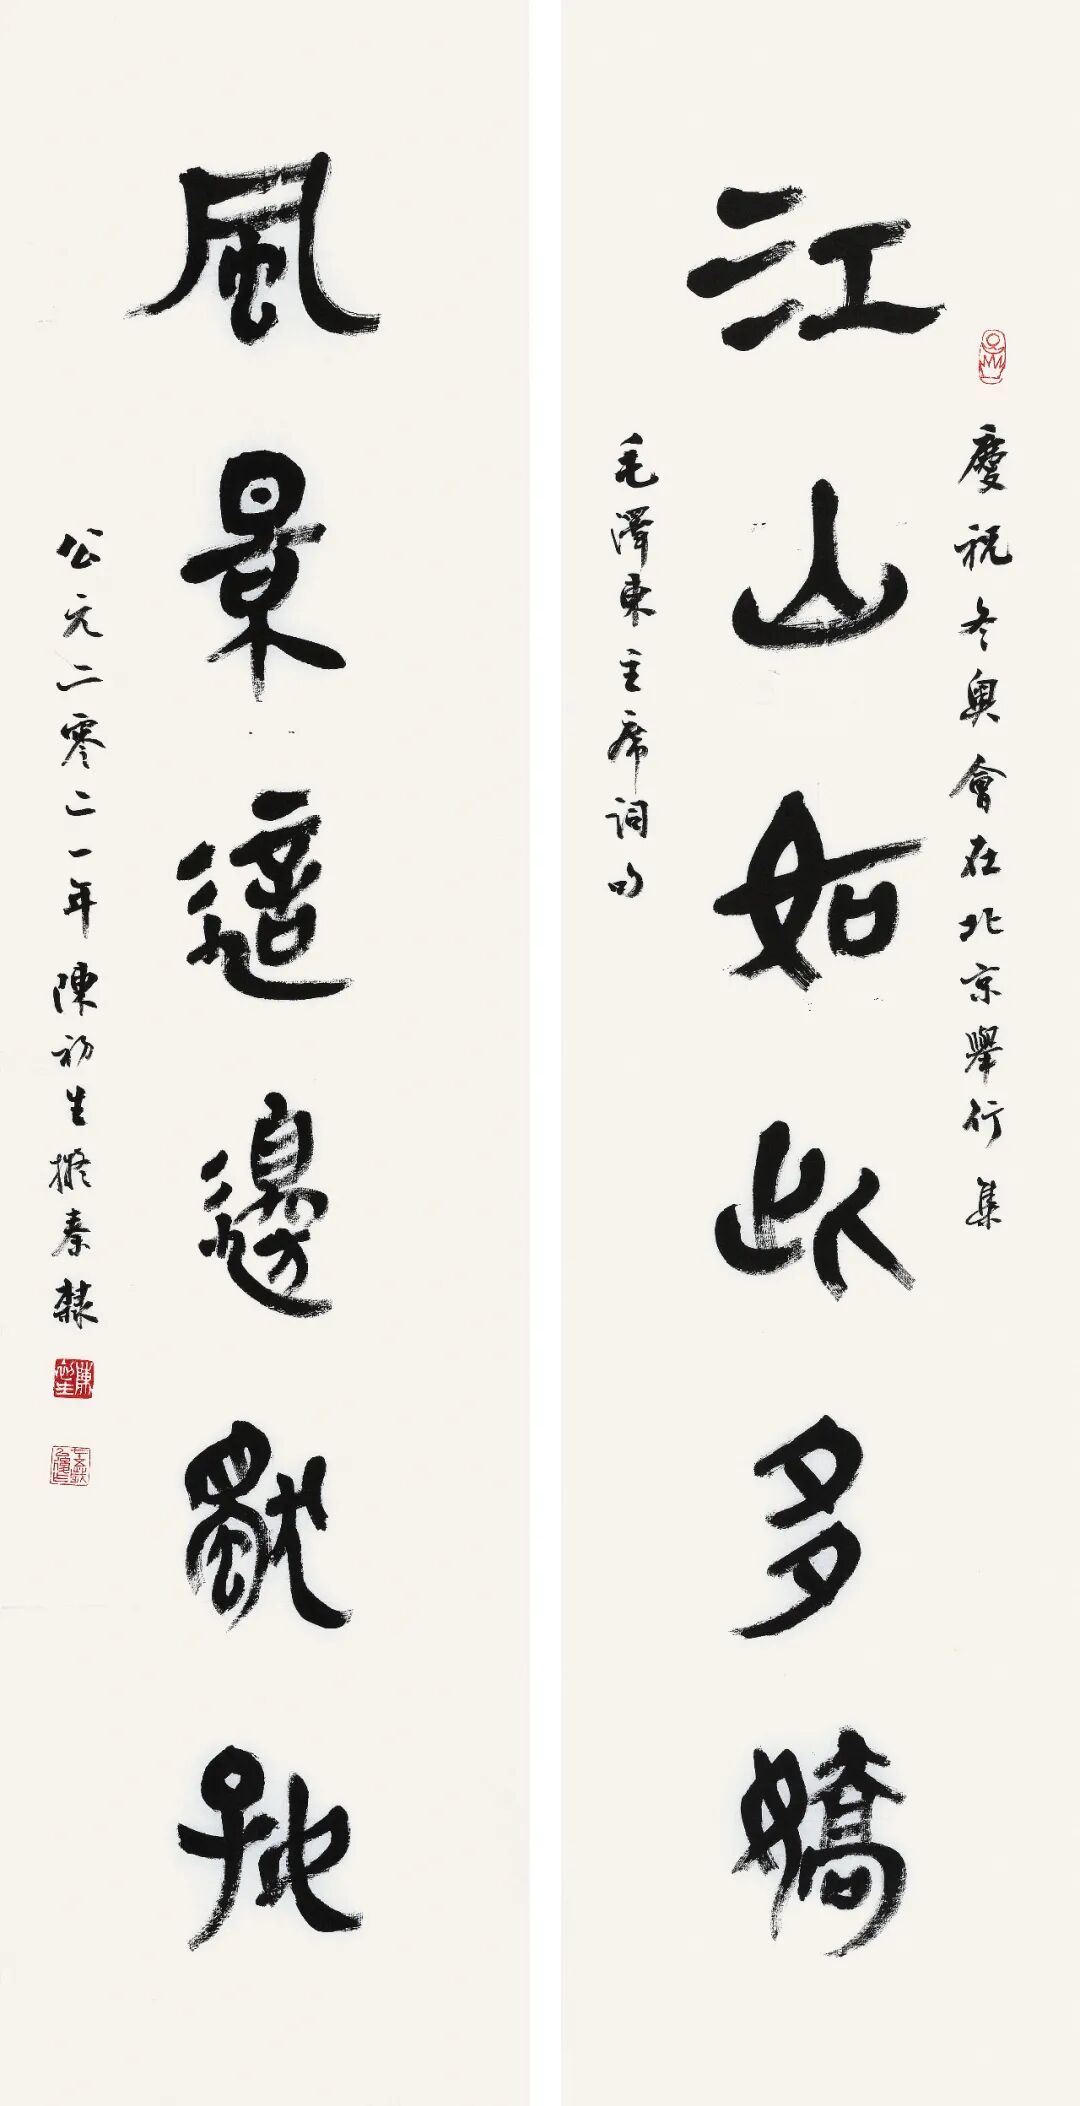 江山如此多嬌
慶祝冬奧會在北京舉行集
毛澤東主席詞句
風景這邊獨好
公元二零二一年陳初生擬秦隸
陳初生